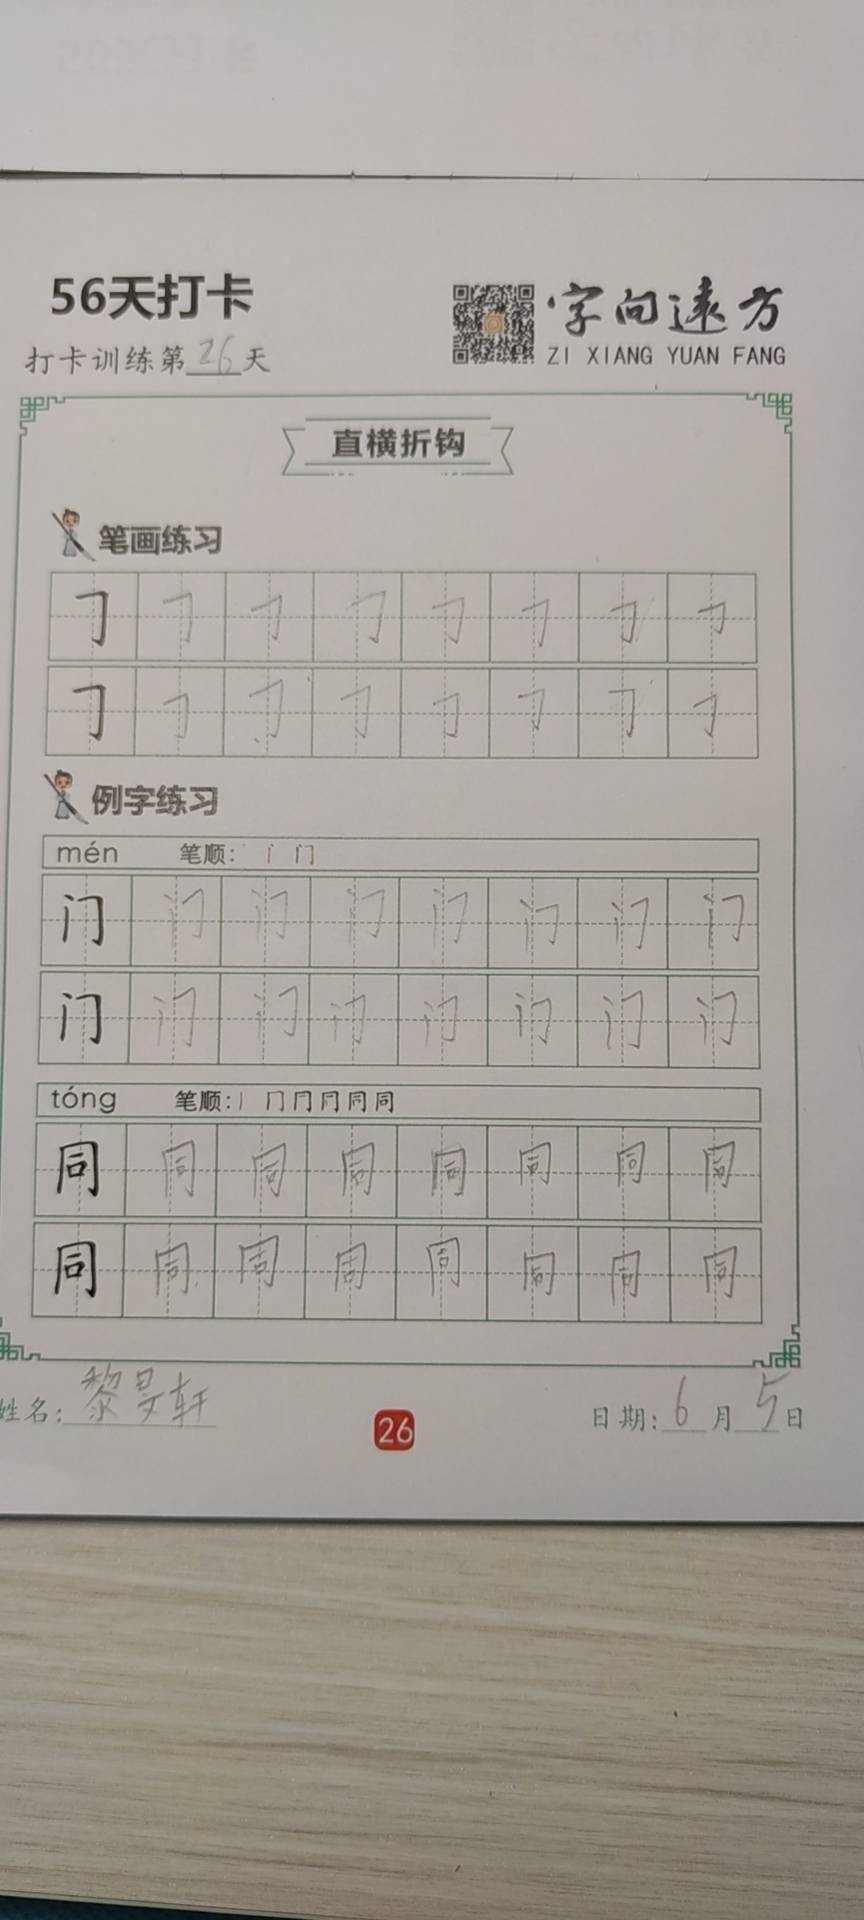 56天打卡
字向远方
打卡训练第26天
ZI XIANG YUAN FANG
直横折钩
笔画练习
例字练习
mén 笔顺: 丨 门
门 门 门 门 门 门 门 门
门 门 门 门 门 门 门 门
tóng 笔顺: 丨 冂 冂 冋 同 同
同 同 同 同 同 同 同 同
同 同 同 同 同 同 同 同
姓名: 黎旻轩
26
日期: 6月5日